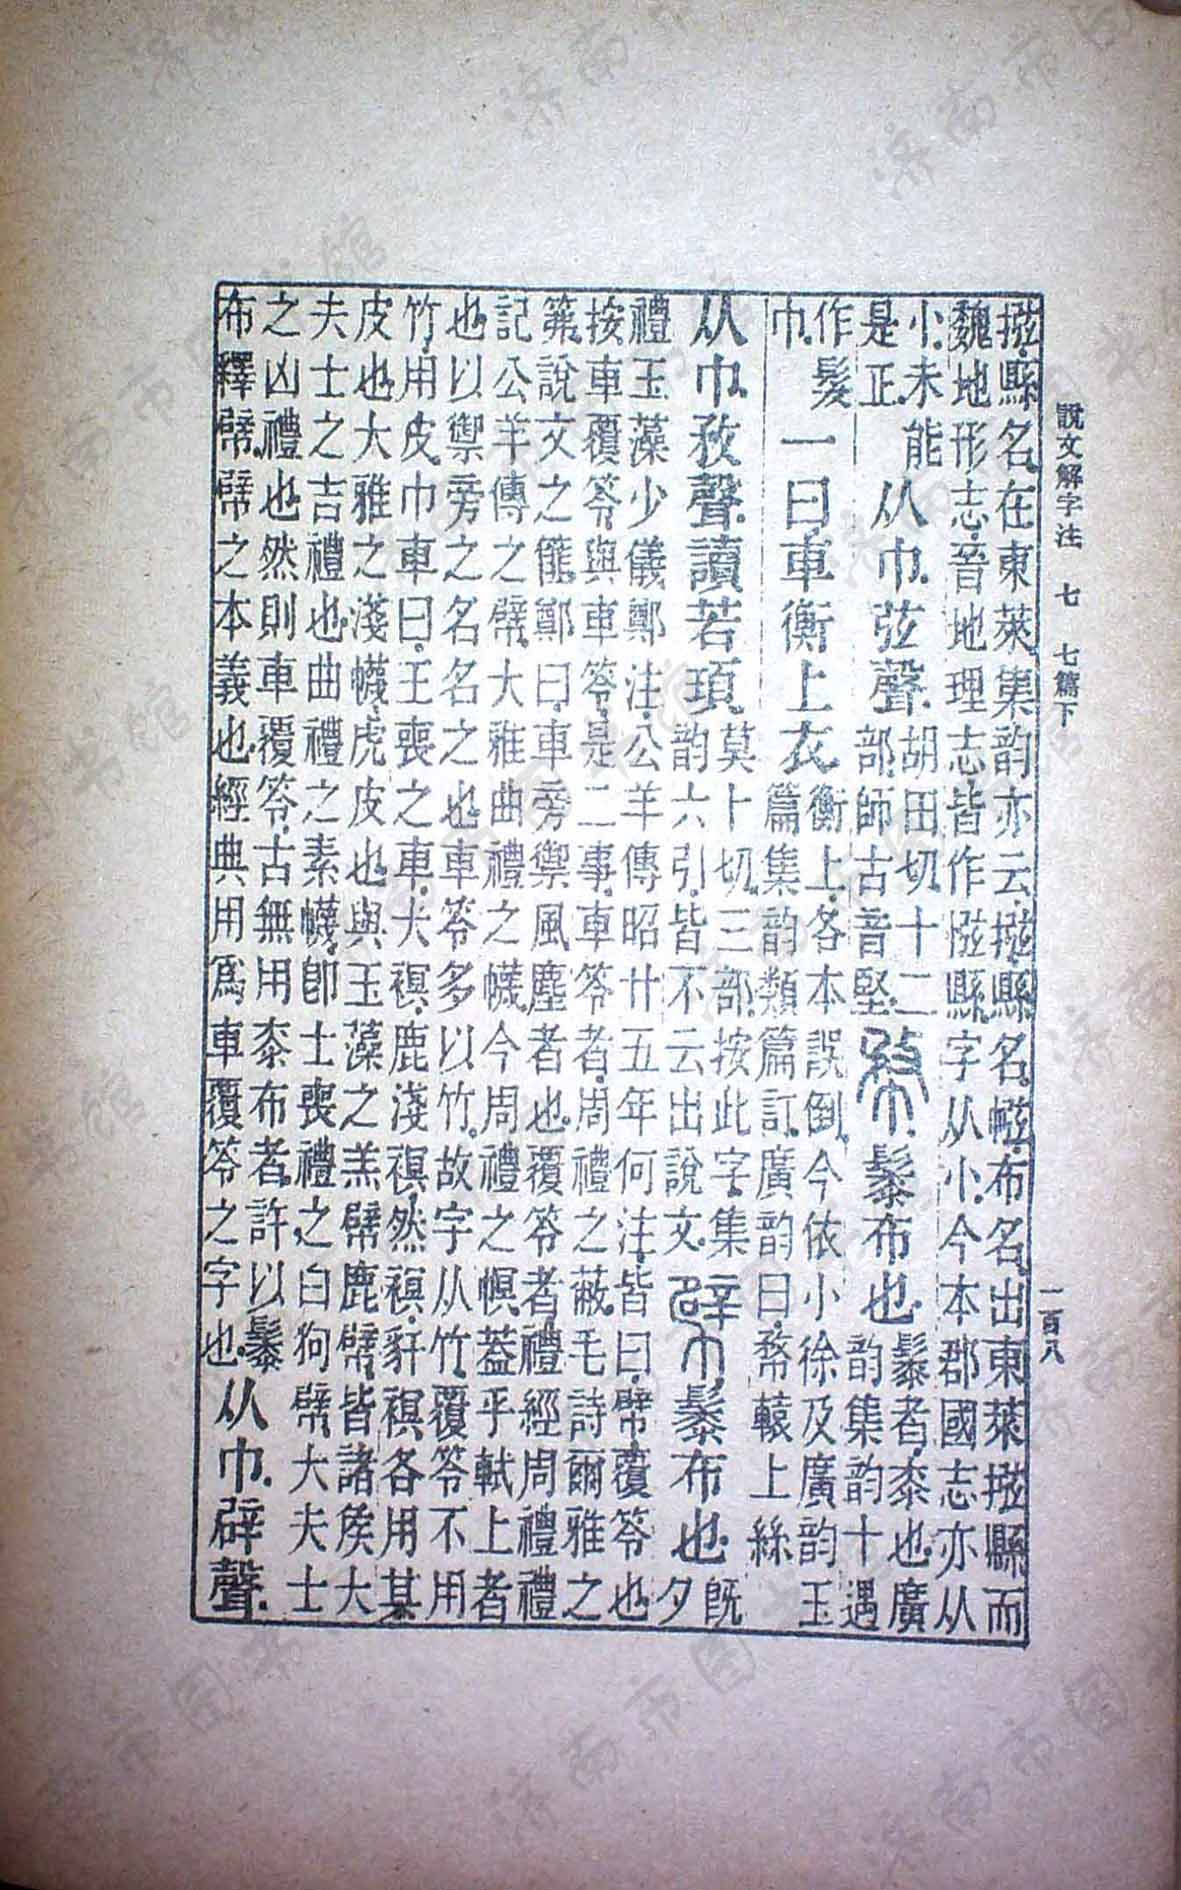 惤縣名在東萊集韵亦云惤縣名㡉布名出東萊惤縣而
魏地形志音地理志皆作惤縣字从小今本郡國志亦从
小未能是正从巾弦聲胡田切十二部師古音堅㡔䰍布也䰍者桼也廣韵集韵十遇
作髮巾一曰車衡上衣衡上各本誤倒今依小徐及廣韵玉篇集韵類篇訂廣韵曰㡔轅上絲
从巾敄聲讀若頊莫卜切三部按此字集韵六引皆不云出說文幦䰍布也既夕
禮玉藻少儀鄭注公羊傳昭廿五年何注皆曰幦覆笭也
按車覆笭與車笭是二事車笭者周禮之蔽毛詩爾雅之
笰說文之篚鄭曰車旁禦風塵者也覆笭者禮經周禮禮
記公羊傳之幦大雅曲禮之幭今周禮之幎葢乎軾上者
也以禦旁之名名之也車笭多以竹故字从竹覆笭不用
竹用皮巾車曰王喪之車犬䙰鹿淺䙰然䙰豻䙰各用某
皮也大雅之淺幭虎皮也與玉藻之羔幦鹿幦皆諸矦大
夫士之吉禮也曲禮之素幭卽士喪禮之白狗幦大夫士
之凶禮也然則車覆笭古無用桼布者許以䰍
布釋幦幦之本義也經典用爲車覆笭之字也从巾辟聲
說文解字注 七 七篇下
一百八